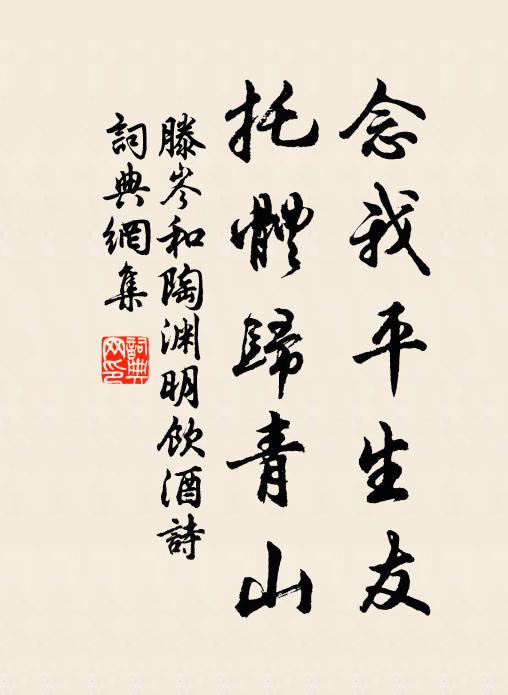 念我平生友
托體歸青山
滕岑和陶淵明飲酒詩
詞典網集
詞典網印